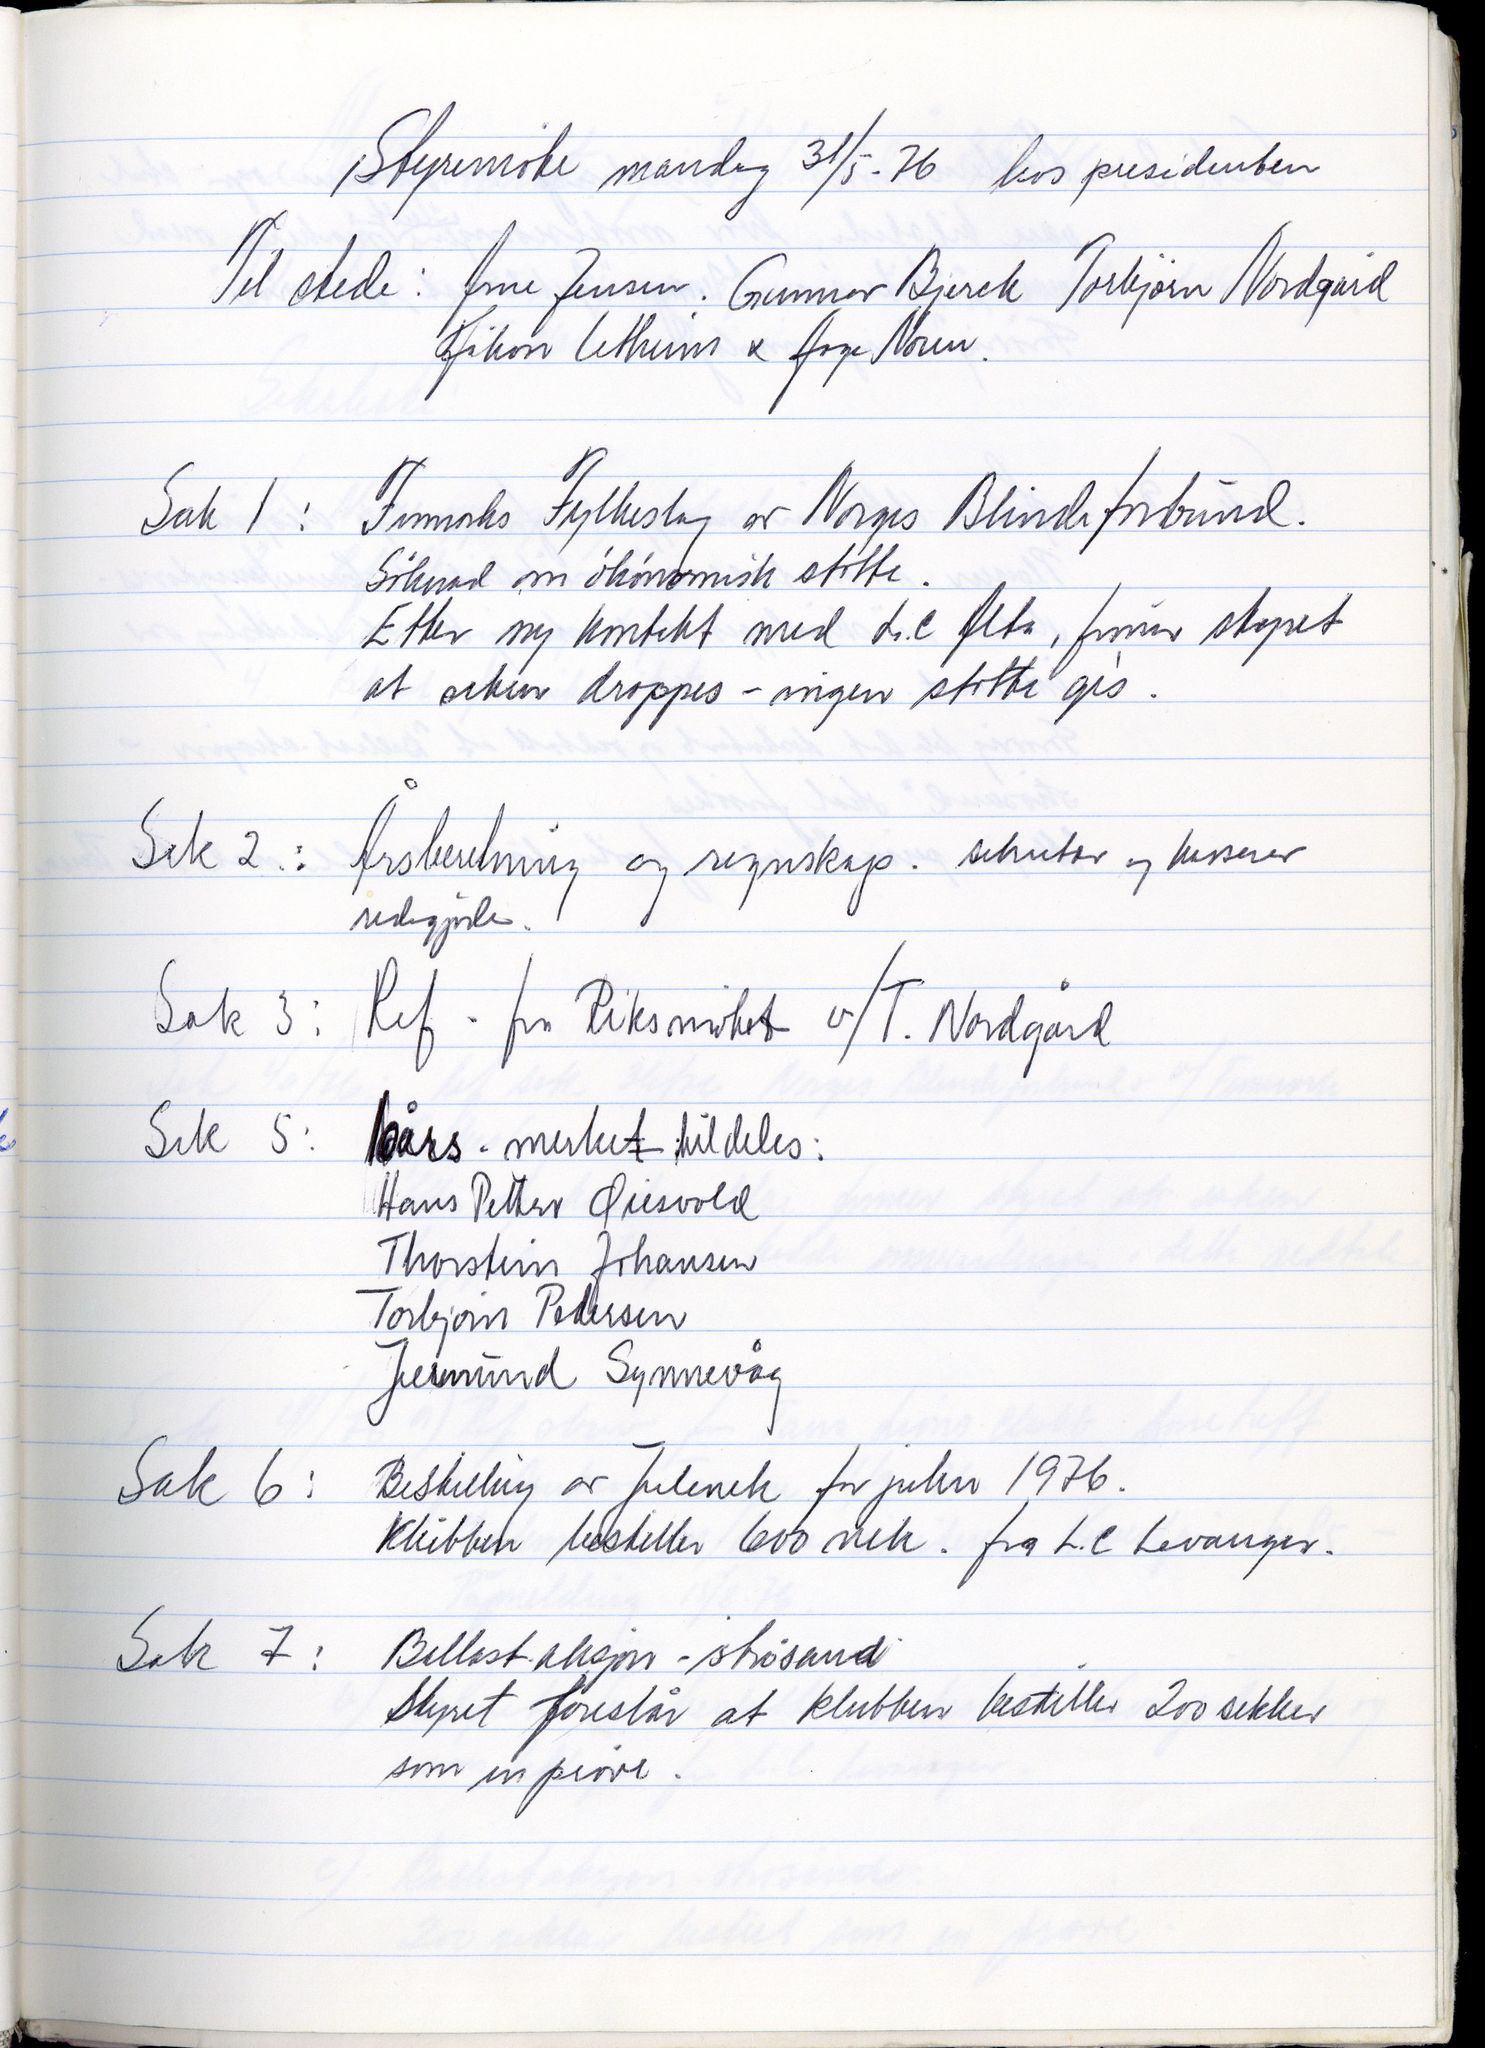 Styremöte mandag 31/5-76 hos presidenten
Til stede: Arne Jensen. Gunnar Bjerck Torbjörn Nordgård
Håkon Utheim & Aage Noren.
Sak 1: Finmarks Fylkeslag av Norges Blindeforbund.
Söknad om ökonomisk stötte.
Etter ny kontakt med L.C Alta, finner styret
at saken droppes - ingen stötte gis.
Sak 2.: Årsberetning og regnskap. sekretær og kasserer
redegjorde.
Sak 3: Ref - fra Riksmötet v/T. Nordgård
Sak 5: års-merket tildeles:
Hans Petter Øiesvold
Thorstein Johansen
Torbjörn Pedersen
Jermund Synnevåg
Sak 6: Bestilling av Julenek for julen 1976.
Klubben bestiller 600 nek. fra L.C Levanger.
Sak 7: Ballast-aksjon - strösand
Styret foreslår at klubben bestiller 200 sekker
som en pröve.